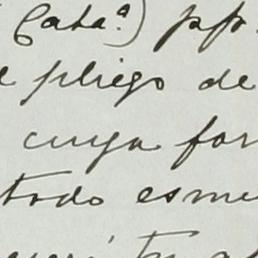 Cataª) pp.
pliego de
cuya for
todo esme